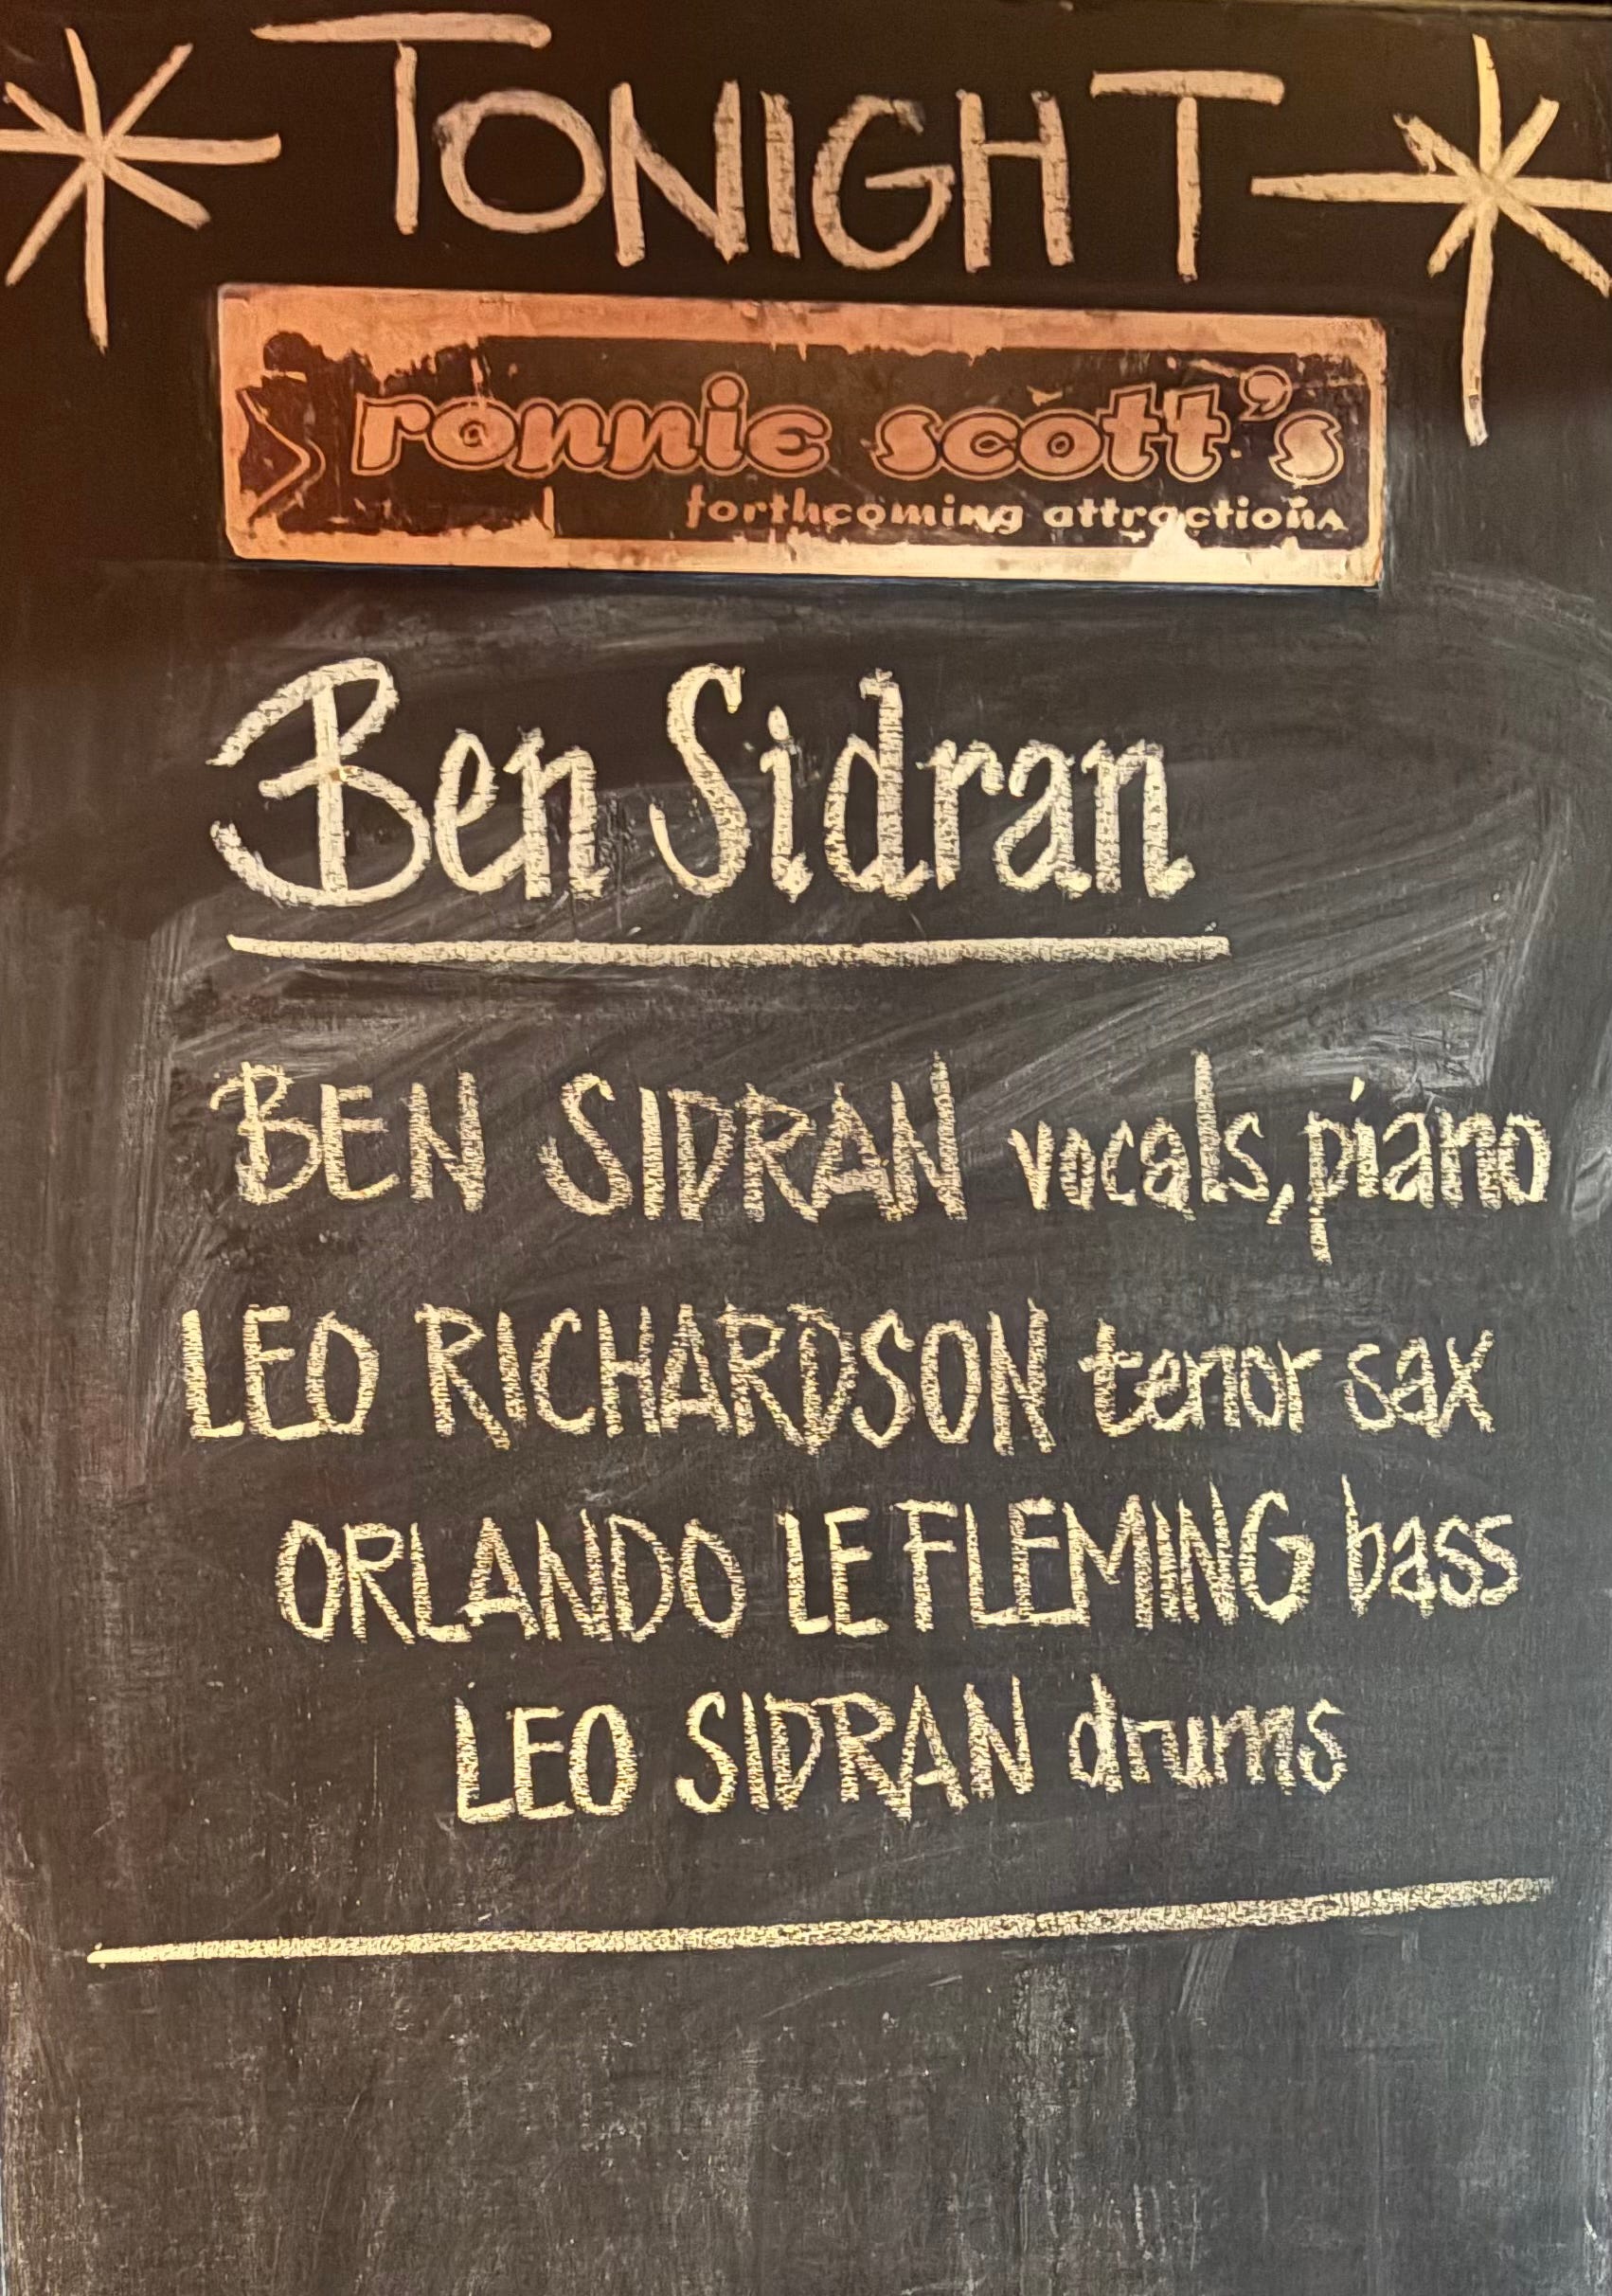 TONIGHT
ronnie scott's
forthcoming attractions
Ben Sidran
BEN SIDRAN vocals, piano
LEO RICHARDSON tenor sax
ORLANDO LE FLEMING bass
LEO SIDRAN drums